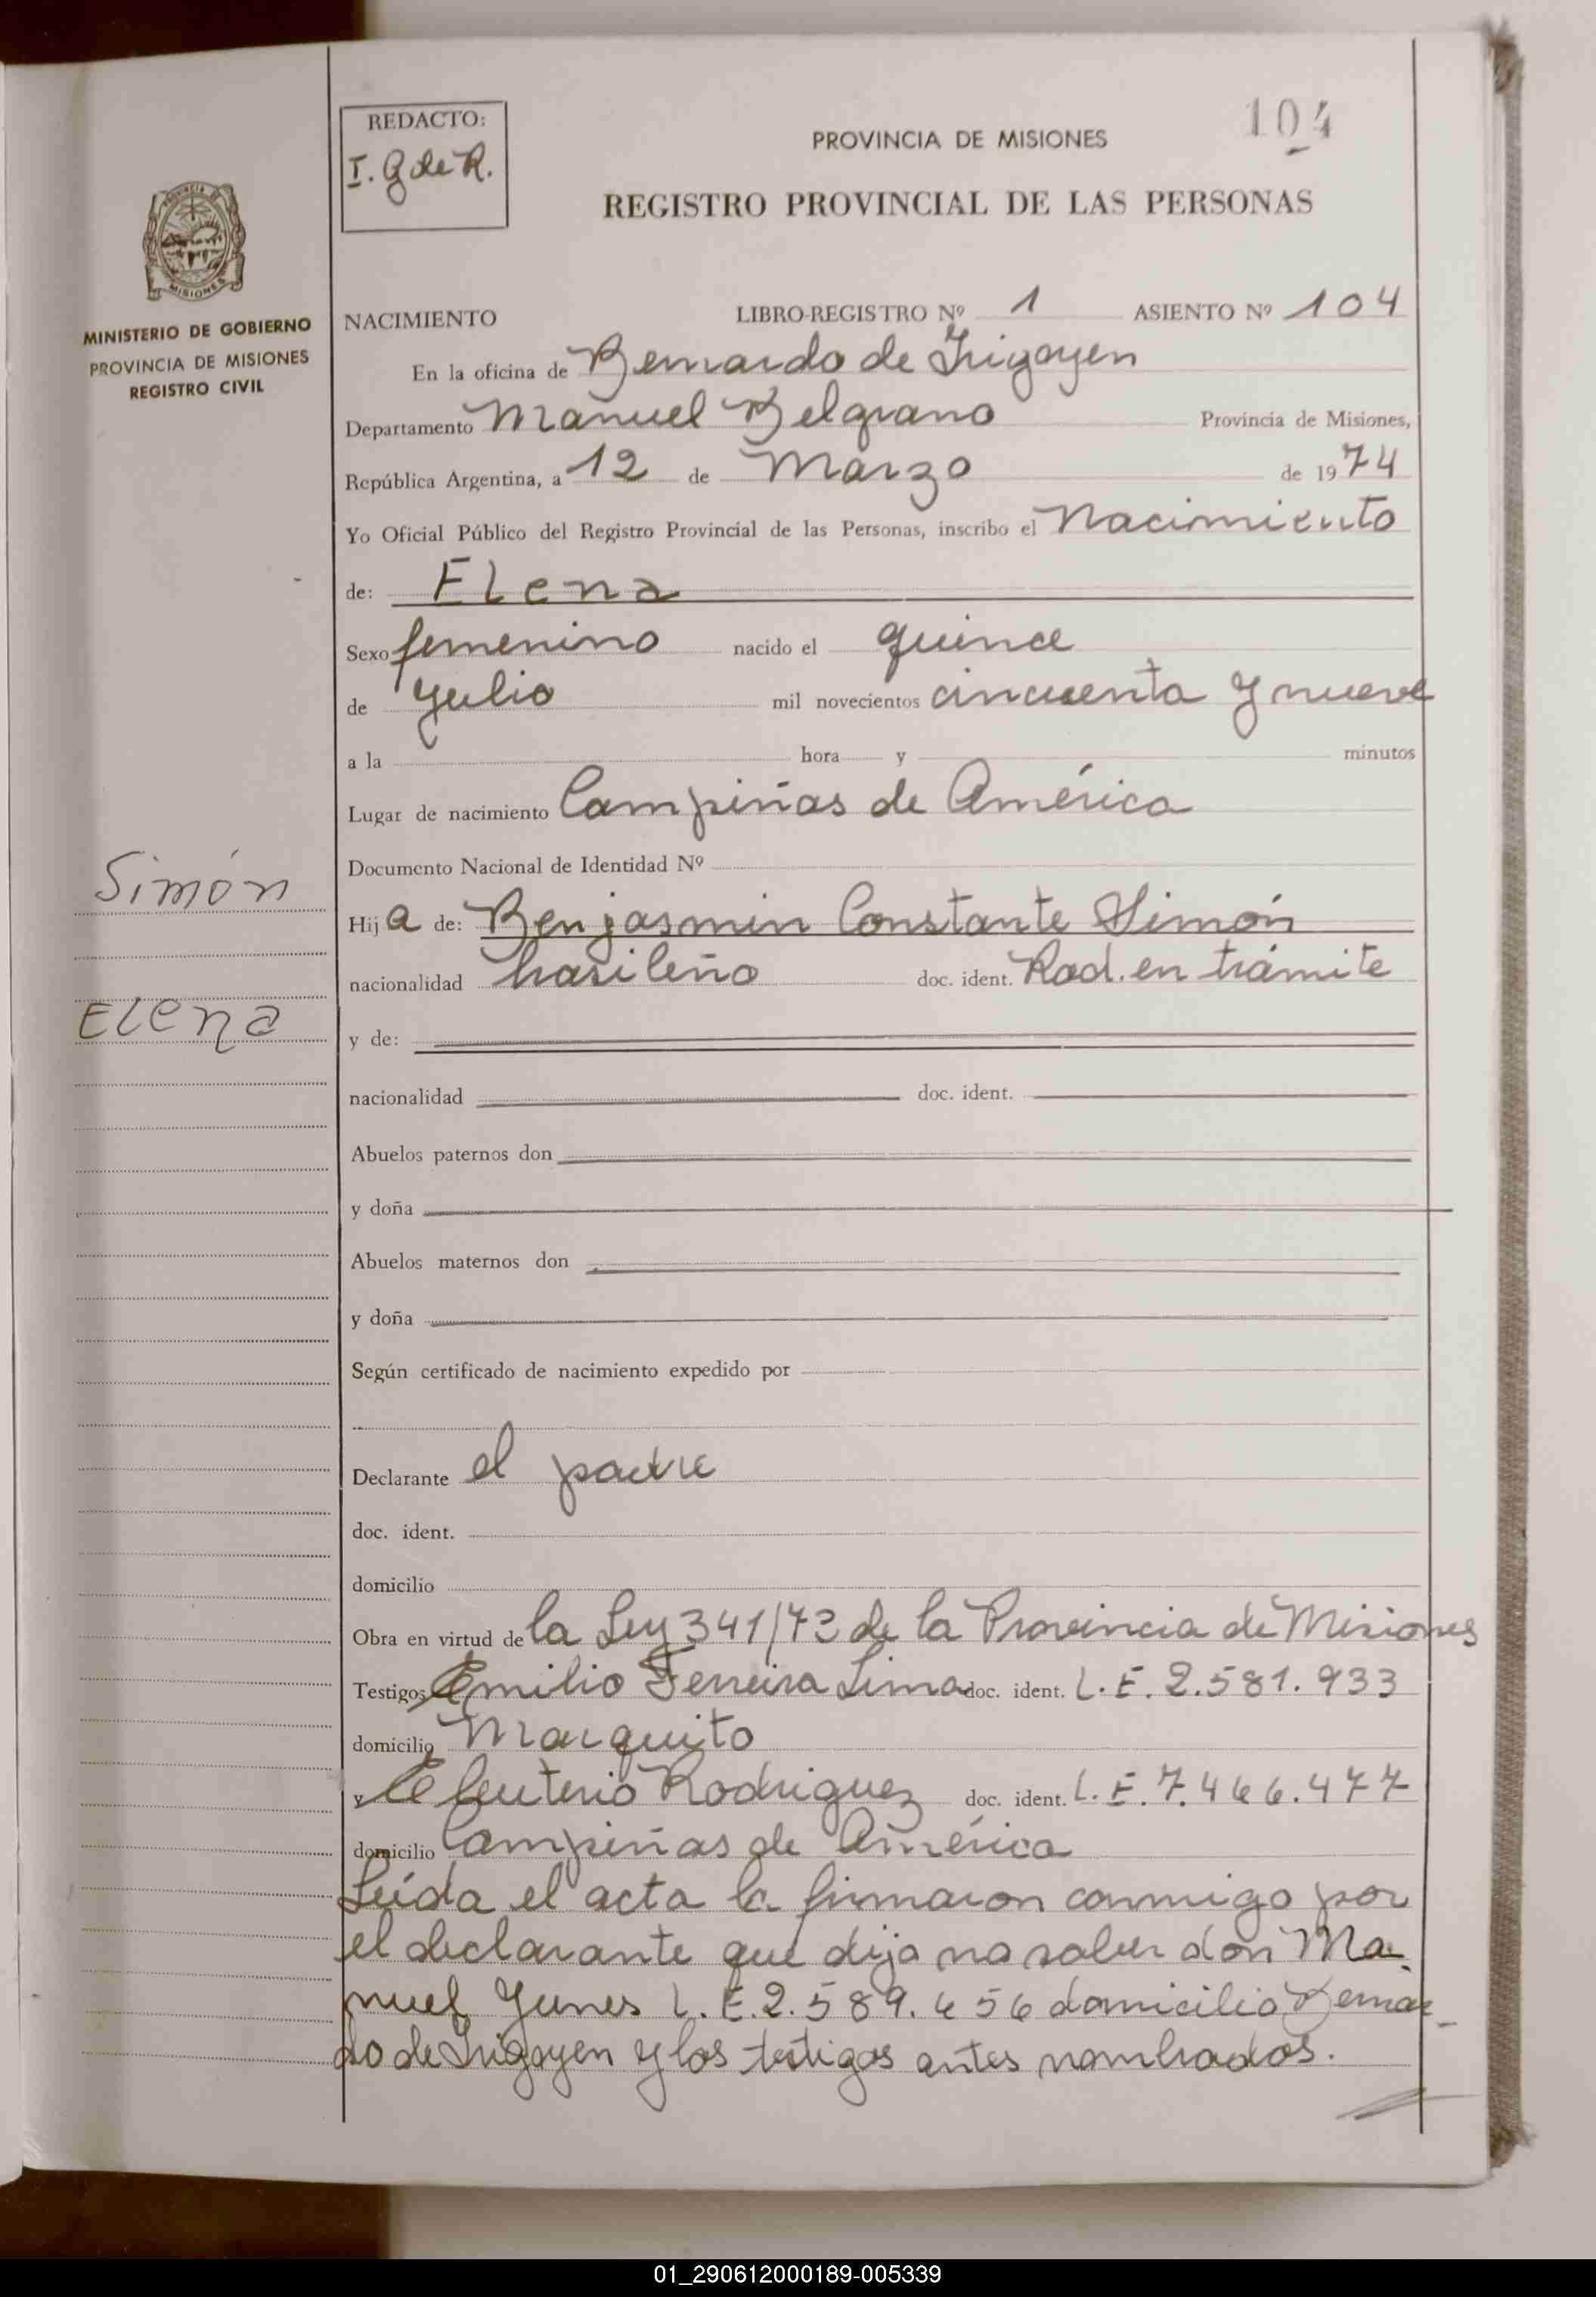 REDACTO:
I. G de R.
104
PROVINCIA DE MISIONES
REGISTRO PROVINCIAL DE LAS PERSONAS
MISIONES
MINISTERIO DE GOBIERNO
PROVINCIA DE MISIONES
REGISTRO CIVIL
NACIMIENTO LIBRO-REGISTRO Nº 1 ASIENTO Nº 104
En la oficina de Bernardo de Irigoyen
Departamento Manuel Belgrano Provincia de Misiones,
República Argentina, a 12 de Marzo de 1974
Yo Oficial Público del Registro Provincial de las Personas, inscribo el Nacimiento
de: Elena
Sexo femenino nacido el quince
de Julio mil novecientos cincuenta y nueve
a la hora y minutos
Lugar de nacimiento Campiñas de América
Documento Nacional de Identidad Nº
Simón
Hija de: Benjasmin Constante Simón
nacionalidad brasileño doc. ident. Rad. en trámite
Elena
y de:
nacionalidad doc. ident.
Abuelos paternos don
y doña
Abuelos maternos don
y doña
Según certificado de nacimiento expedido por
Declarante el padre
doc. ident.
domicilio
Obra en virtud de la Ley 341/73 de la Provincia de Misiones
Testigos Emilio Ferreira Lima doc. ident. L.E. 2.581.933
domicilio Marquito
y Eleuterio Rodriguez doc. ident. L.E. 7.466.477
domicilio Campiñas de América
Leída el acta la firmaron conmigo por
el declarante que dijo no saber don Ma-
nuel Yunes L.E. 2.589.656 domicilio Bernar-
do de Irigoyen y los testigos antes nombrados.
01_290612000189-005339